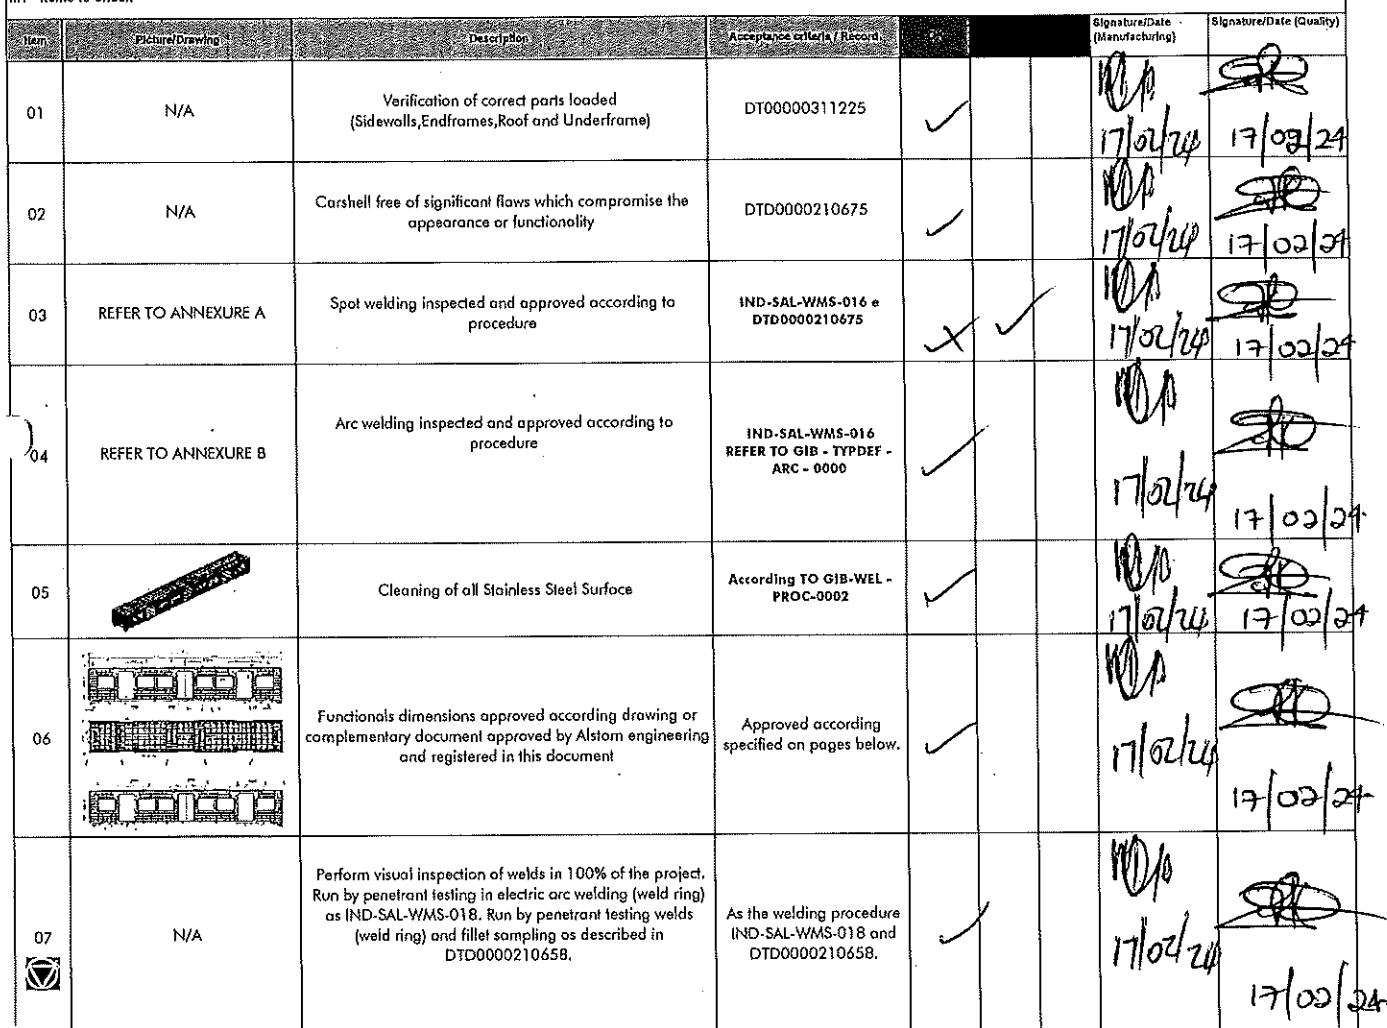 Item Picture/Drawing Description Acceptance criteria / Record Ok Signature/Date (Manufacturing) Signature/Date (Quality)
01
N/A
Verification of correct parts loaded
(Sidewalls,Endframes,Roof and Underframe)
DT00000311225
✓
17/02/24
17/02/24
02
N/A
Carshell free of significant flaws which compromise the
appearance or functionality
DTD0000210675
✓
17/02/24
17/02/24
03
REFER TO ANNEXURE A
Spot welding inspected and approved according to
procedure
IND-SAL-WMS-016 e
DTD0000210675
✓ X ✓
17/02/24
17/02/24
04
REFER TO ANNEXURE B
Arc welding inspected and approved according to
procedure
IND-SAL-WMS-016
REFER TO GIB - TYPDEF -
ARC - 0000
✓
17/02/24
17/02/24
05
Cleaning of all Stainless Steel Surface
According TO GIB-WEL -
PROC-0002
✓
17/02/24
17/02/24
06
Functionals dimensions approved according drawing or
complementary document approved by Alstom engineering
and registered in this document
Approved according
specified on pages below.
✓
17/02/24
17/02/24
07
N/A
Perform visual inspection of welds in 100% of the project.
Run by penetrant testing in electric arc welding (weld ring)
as IND-SAL-WMS-018. Run by penetrant testing welds
(weld ring) and fillet sampling as described in
DTD0000210658.
As the welding procedure
IND-SAL-WMS-018 and
DTD0000210658.
✓
17/02/24
17/02/24